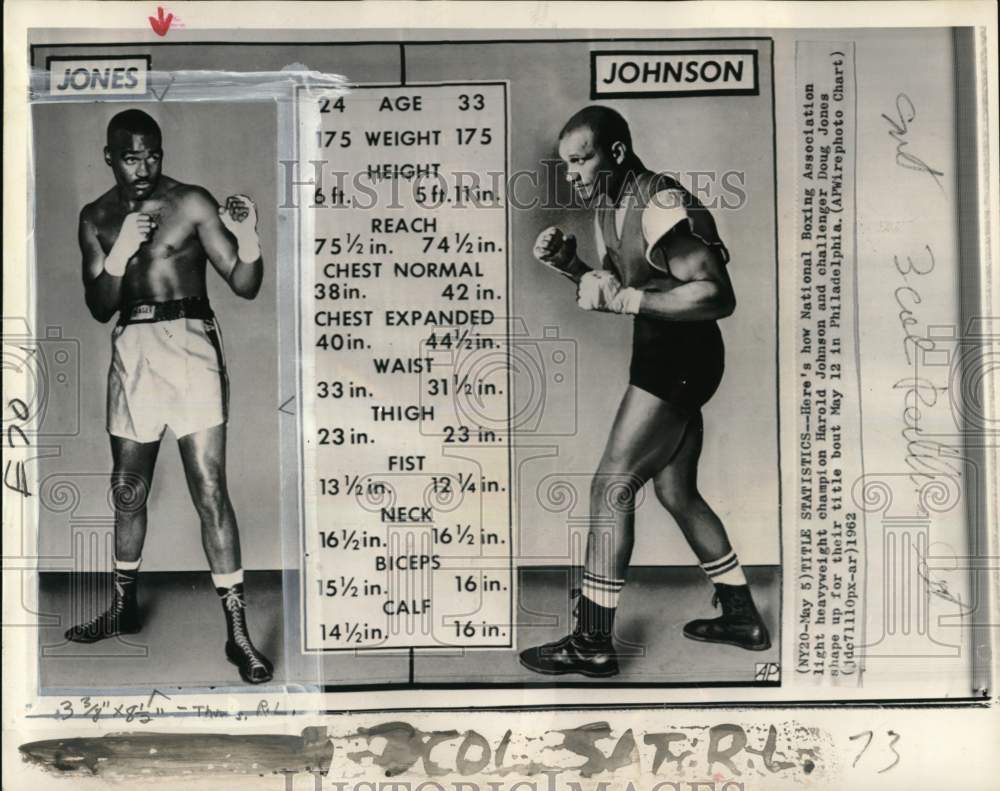 JONES
JOHNSON
24 AGE 33
175 WEIGHT 175
HEIGHT
6 ft. 5 ft. 11 in.
REACH
75 ½ in. 74 ½ in.
CHEST NORMAL
38 in. 42 in.
CHEST EXPANDED
40 in. 44 ½ in.
WAIST
33 in. 31 ½ in.
THIGH
23 in. 23 in.
FIST
13 ½ in. 12 ¼ in.
NECK
16 ½ in. 16 ½ in.
BICEPS
15 ½ in. 16 in.
CALF
14 ½ in. 16 in.
AP
(NY20-May 5)TITLE STATISTICS--Here's how National Boxing Association
light heavyweight champion Harold Johnson and challenger Doug Jones
shape up for their title bout May 12 in Philadelphia.(APWirephoto Chart)
(jdc71110px-ar)1962
3 col
3 ⅜" x 8 ½" - Thurs. R.L.
3 COL SAT R.L. 73
HISTORIC IMAGES
HISTORIC IMAGES